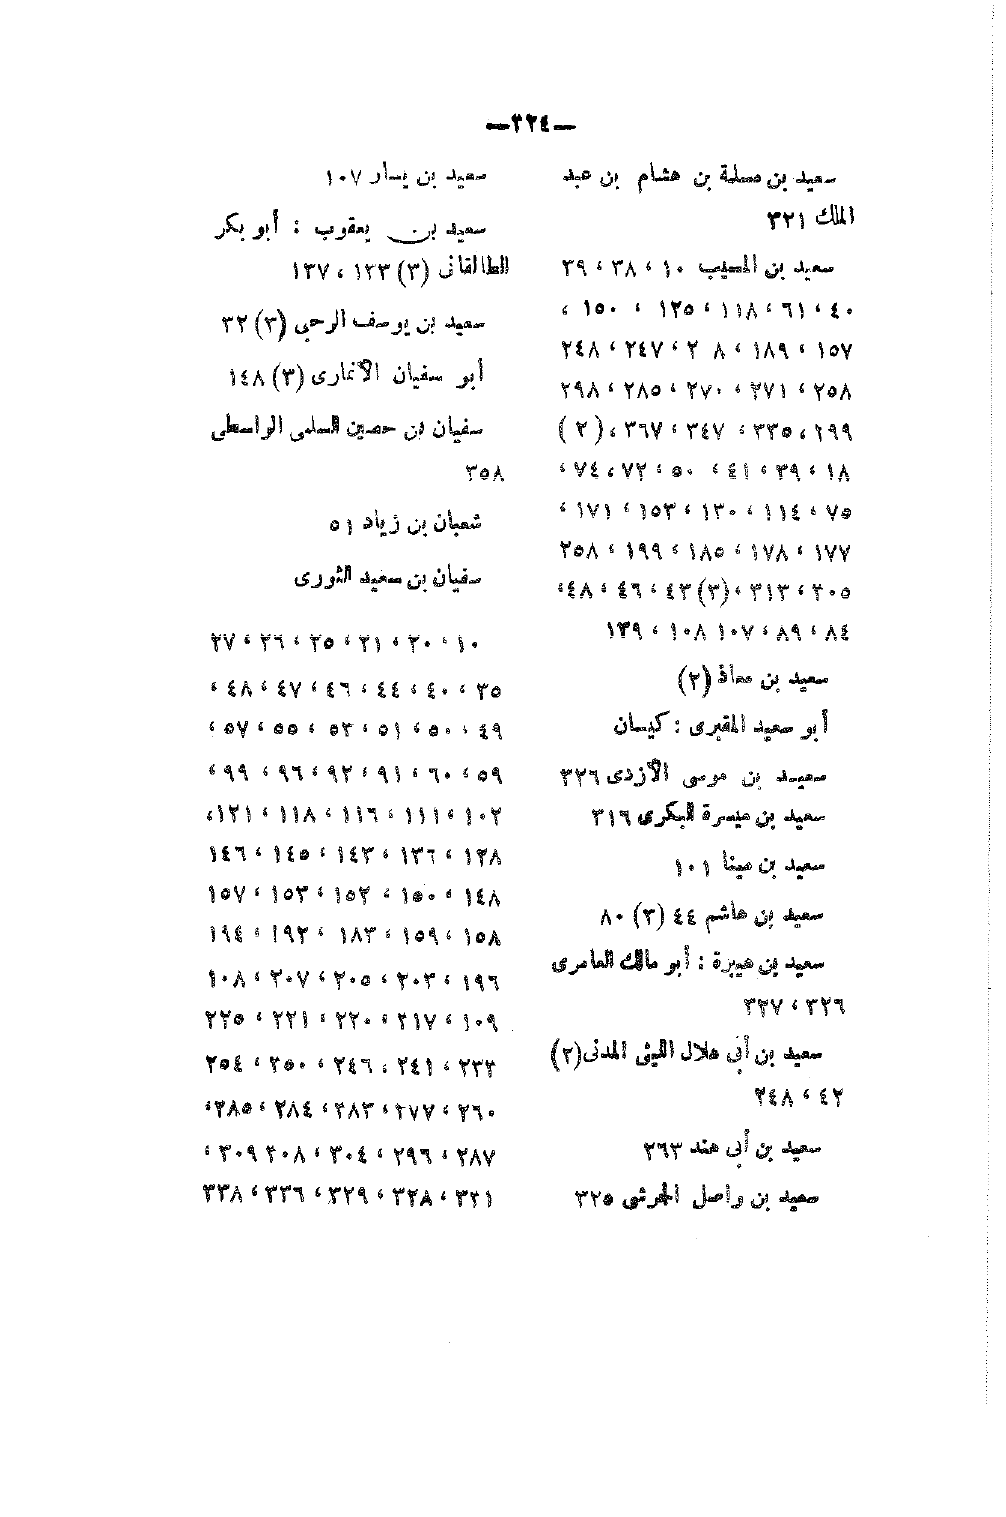 —٢٢٤—
سعيد بن مسلمة بن هشام بن عبد
الملك ٣٢١
سعيد بن المسيب ١٠ ، ٣٨ ، ٣٩
٤٠ ، ٦١ ، ١١٨ ، ١٢٥ ، ١٥٠ ،
١٥٧ ، ١٨٩ ، ٨ ٢ ، ٢٤٧ ، ٢٤٨
٢٥٨ ، ٢٧١ ، ٢٧٠ ، ٢٨٥ ، ٢٩٨
٢٩٩ ، ٣٣٥ ، ٣٤٧ ، ٣٦٧ ، (٢)
١٨ ، ٣٩ ، ٤١ ، ٥٠ ، ٧٢ ، ٧٤ ،
٧٥ ، ١١٤ ، ١٣٠ ، ١٥٣ ، ١٧١ ،
١٧٧ ، ١٧٨ ، ١٨٥ ، ١٩٩ ، ٢٥٨
٣٠٥ ، ٣١٣ ، (٣) ٤٣ ، ٤٦ ، ٤٨ ،
٨٤ ، ٨٩ ، ١٠٧ ١٠٨ ، ١٣٩
سعيد بن معاذ (٢)
أبو سعيد المقبرى : كيسان
سعيد بن موسى الأزدى ٣٢٦
سعيد بن ميسرة البكرى ٣١٦
سعيد بن مينا ١٠١
سعيد بن هاشم ٤٤ (٣) ٨٠
سعيد بن هبيرة : أبو مالك العامرى
٣٢٦ ، ٣٢٧
سعيد بن أبى هلال الليثى المدنى (٢)
٤٢ ، ٢٤٨
سعيد بن أبى هند ٢٦٣
سعيد بن واصل الجرشى ٣٢٥
سعيد بن يسار ١٠٧
سعيد بن يعقوب : أبو بكر
الطالقانى (٣) ١٢٣ ، ١٣٧
سعيد بن يوسف الرحبي (٣) ٣٢
أبو سفيان الأنمارى (٣) ١٤٨
سفيان بن حصين السلمى الواسطى
٣٥٨
شعبان بن زياد ٥١
سفيان بن سعيد الثورى
١٠ ، ٢٠ ، ٢١ ، ٢٥ ، ٢٦ ، ٢٧
٣٥ ، ٤٠ ، ٤٤ ، ٤٦ ، ٤٧ ، ٤٨ ،
٤٩ ، ٥٠ ، ٥١ ، ٥٣ ، ٥٥ ، ٥٧ ،
٥٩ ، ٦٠ ، ٩١ ، ٩٢ ، ٩٦ ، ٩٩ ،
١٠٢ ، ١١١ ، ١١٦ ، ١١٨ ، ١٢١ ،
١٢٨ ، ١٣٦ ، ١٤٣ ، ١٤٥ ، ١٤٦
١٤٨ ، ١٥٠ ، ١٥٢ ، ١٥٣ ، ١٥٧
١٥٨ ، ١٥٩ ، ١٨٣ ، ١٩٢ ، ١٩٤
١٩٦ ، ٢٠٣ ، ٢٠٥ ، ٢٠٧ ، ١٠٨
١٠٩ ، ٢١٧ ، ٢٢٠ ، ٢٢١ ، ٢٢٥
٢٣٣ ، ٢٤١ ، ٢٤٦ ، ٢٥٠ ، ٢٥٤
٢٦٠ ، ٢٧٧ ، ٢٨٣ ، ٢٨٤ ، ٢٨٥ ،
٢٨٧ ، ٢٩٦ ، ٣٠٤ ، ٣٠٨ ٣٠٩ ،
٣٢١ ، ٣٢٨ ، ٣٢٩ ، ٣٣٦ ، ٣٣٨